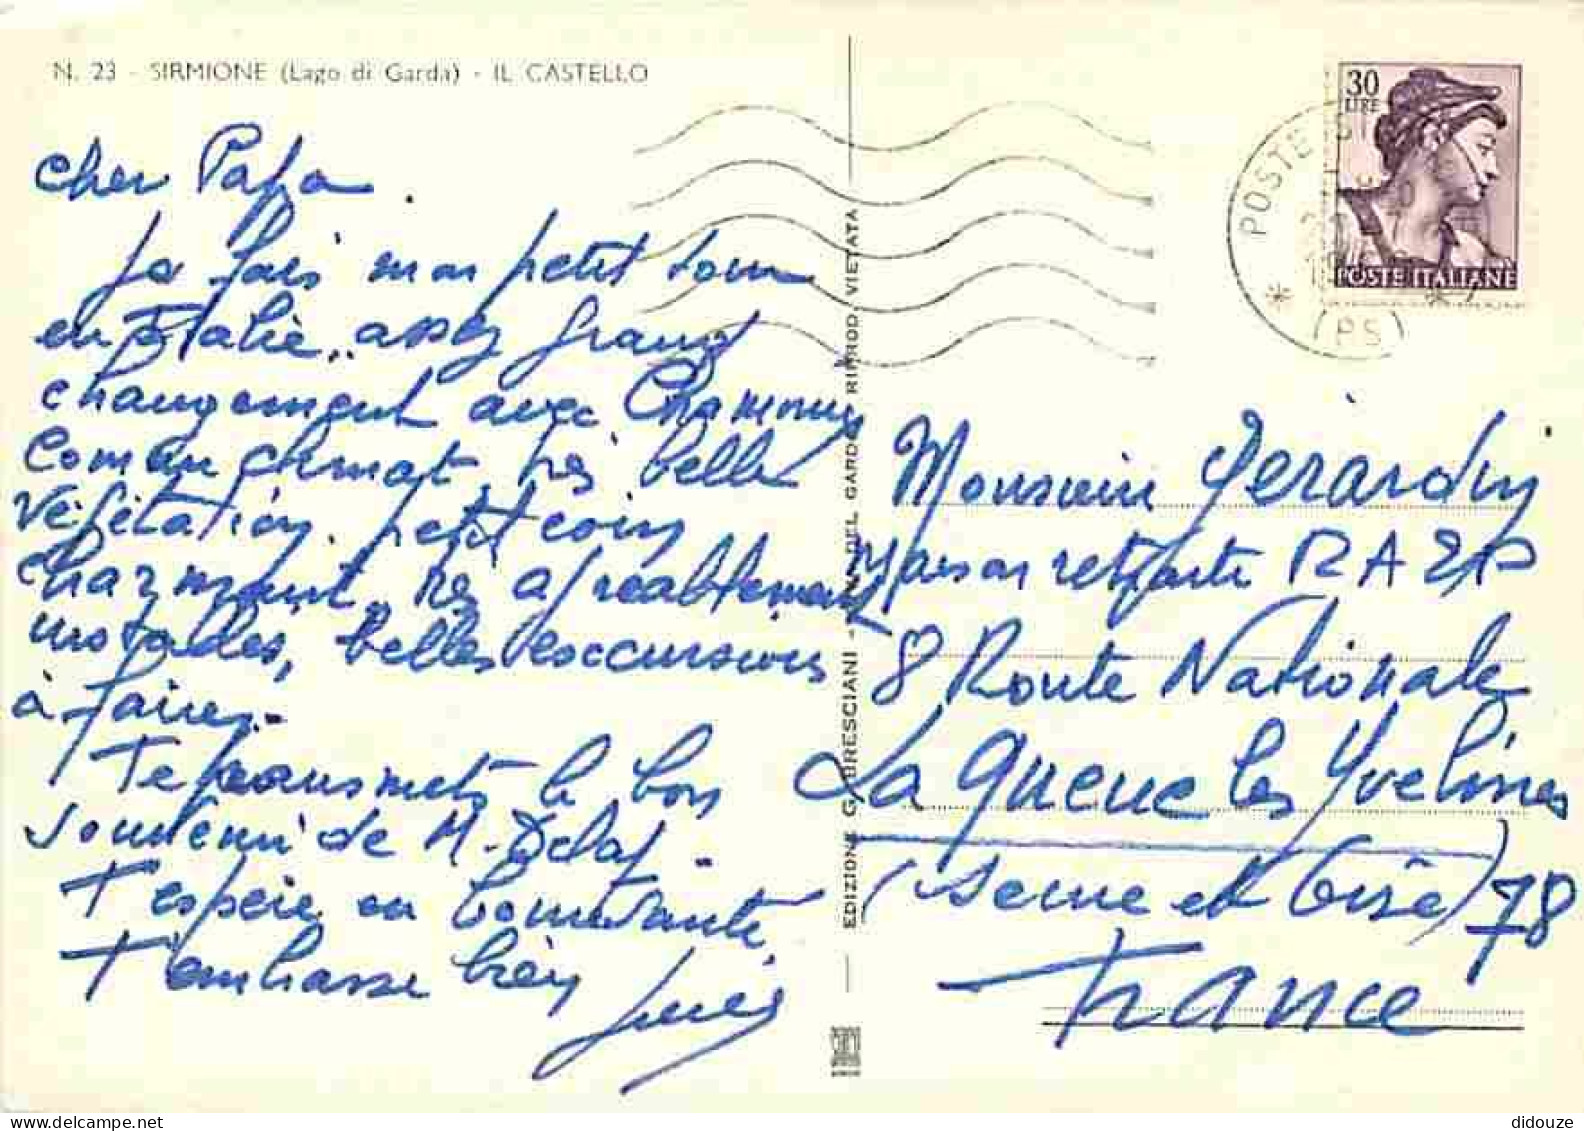 N. 23 - SIRMIONE (Lago di Garda) - IL CASTELLO
cher Papa.
Je fais mon petit tour
en Italie, assez grand
changement avec Chamonix
comme climat, très belle
végétation, petit coin
charmant, très agréablement
installés, belles excursions
à faire.
Te transmets le bon
souvenir de M.
T'espère en bonne santé
T'embrasse bien
EDIZIONE G. BRESCIANI - DEL GARDA RIPROD. VIETATA
30
LIRE
POSTE ITALIANE
POSTE
(PS)
Monsieur Gérardin
Maison retraite RAEP
8 Route Nationale
La Queue les Yvelines
(Seine et Oise) 78
France
delcampe.net
didouze